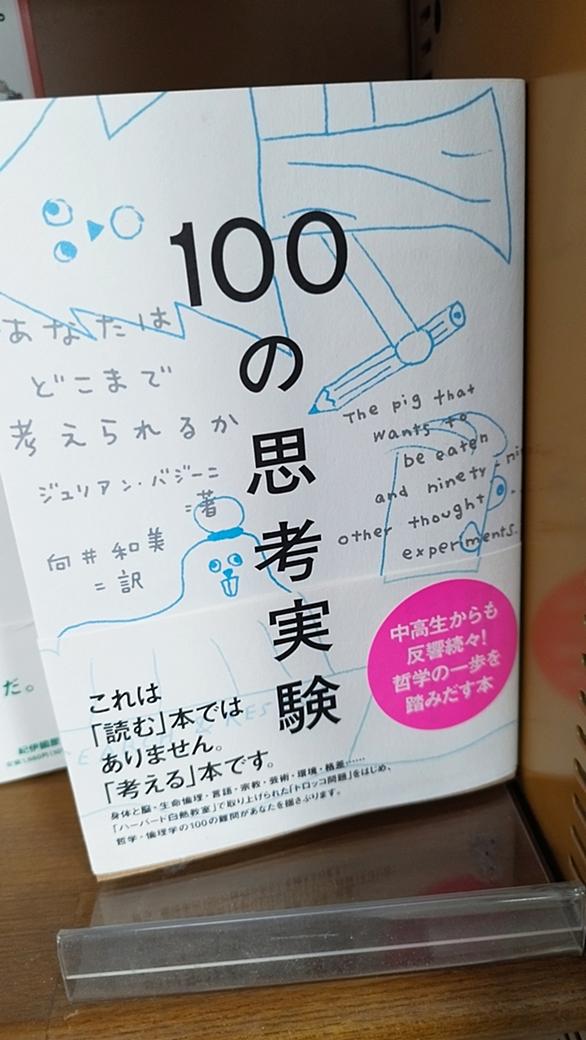 100の思考実験
あなたは
どこまで
考えられるか
ジュリアン・バジーニ
=著
向井和美
=訳
The pig that
wants to
be eaten
and ninety-ni
other thought
experiments.
中高生からも
反響続々!
哲学の一歩を
踏みだす本
これは
「読む」本では
ありません。
「考える」本です。
身体と脳・生命倫理・言語・宗教・芸術・環境・格差……
「ハーバード白熱教室」で取り上げられた「トロッコ問題」をはじめ、
哲学・倫理学の100の難問があなたを揺さぶります。
だ。
紀伊國屋